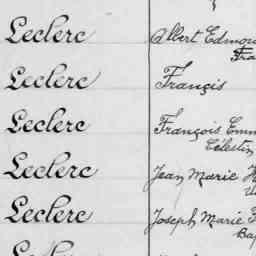 Leclerc Albert Edmou
Fra
Leclerc Françis
Leclerc François Emm
Célestin
Leclerc Jean Marie
Leclerc Joseph Marie F
Bap